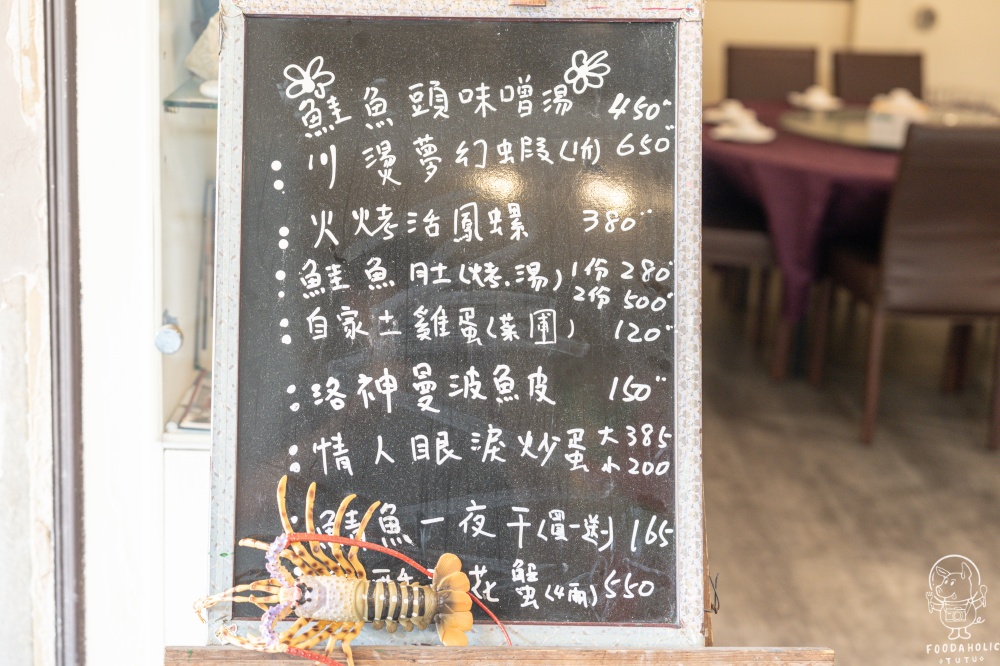 鮭魚頭味噌湯 450"
川燙夢幻蝦(1份) 650"
火烤活鳳螺 380"
鮭魚肚(烤.湯) 1份 280"
2份 500"
自家土雞蛋(菜圃) 120"
洛神曼波魚皮 150"
情人眼淚炒蛋 大 385
小 200
鯖魚一夜干(買一送一) 165
花蟹(4兩) 550
FOODAHOLIC
TUTU